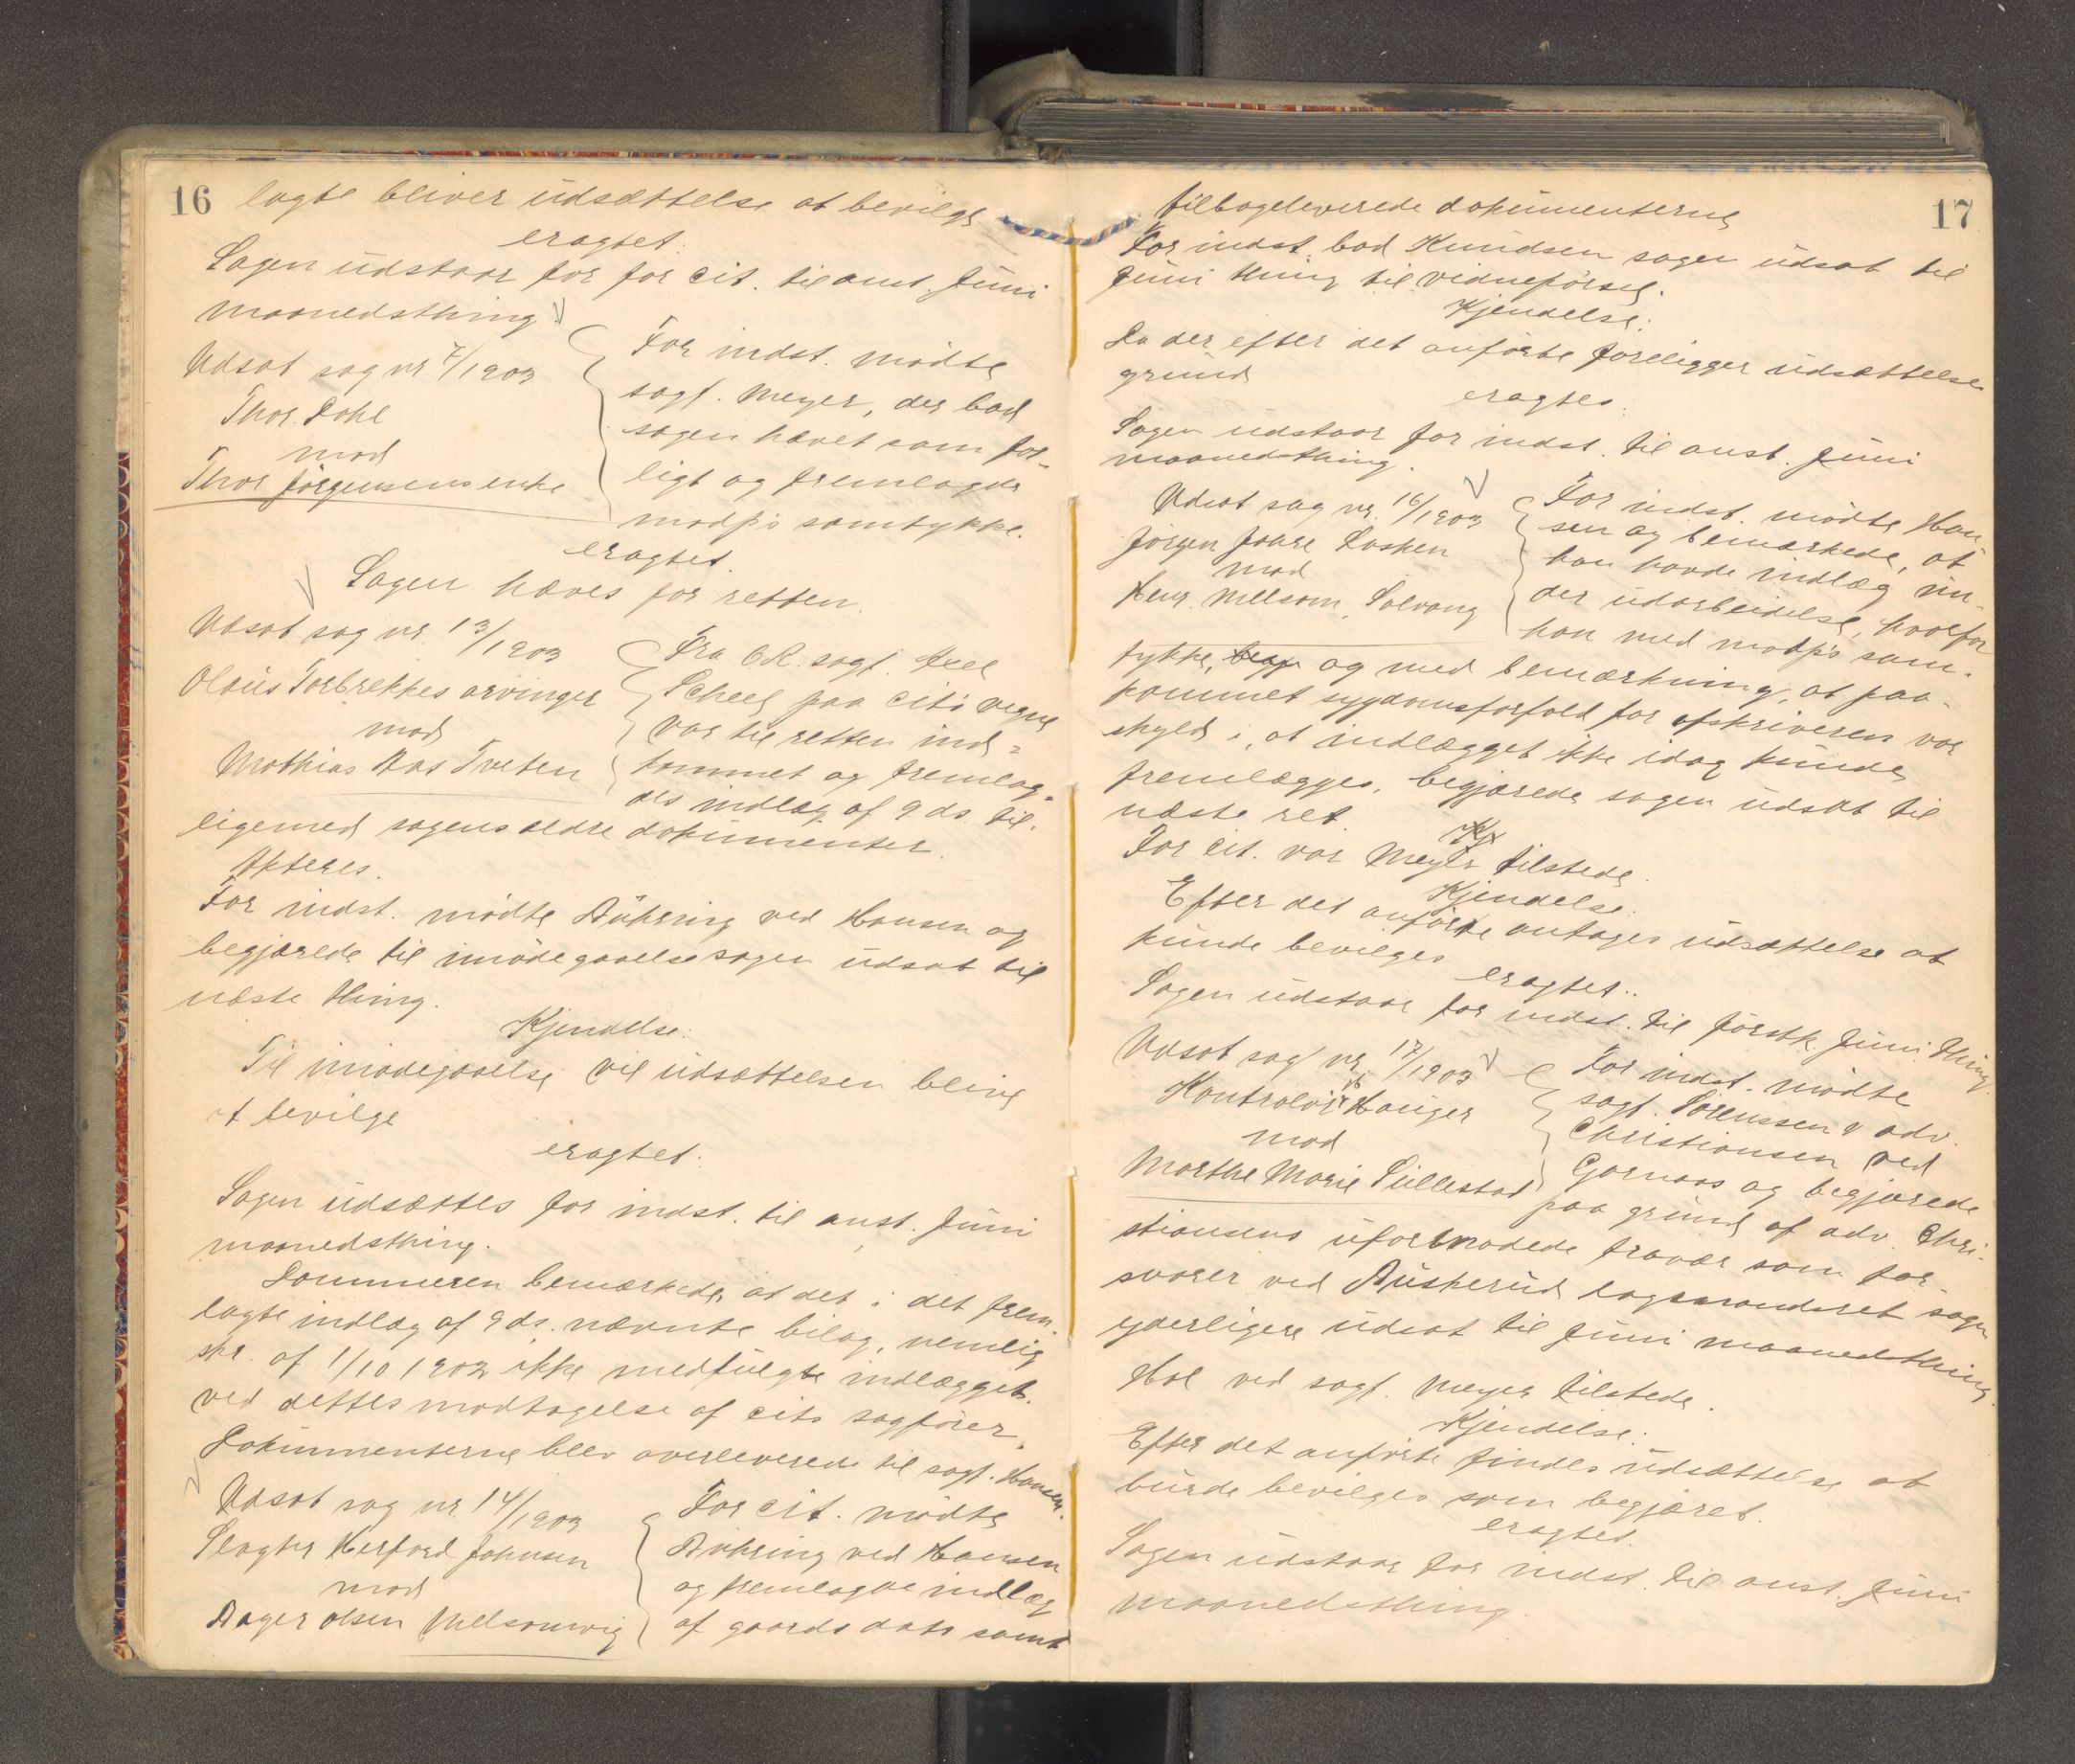 16
lagte bliver udsættelse at bevilge
eragtet:
Sagen udstaar for for cit. til anst. Juni
maanedsthing.
Udsat sag nr 7/1903
Thor Dahl
mod
Thor Jörgensens enke
For indst. mödte
sagf. Meyer, der bad
sagen hævet som for-
ligt og fremlagde
modp's samtykke.
eragtet.
Sagen hæves for retten.
Udsat sag nr. 13/1903
Olaus Torbrekkes arvinger
mod
Mathias Aas Tveten
Fra O.R. sagf. Axel
Scheel paa cit's vegne
var til retten ind-
kommet og fremlag-
des indlæg af 9 ds. til-
ligemed sagens ældre dokumenter.
Akteres.
For indst. mödte Bühring ved Hansen og
begjærede til imödegaaelse sagen udsat til
næste thing.
Kjendelse:
Til imödegaaelse vil udsættelsen blive
at bevilge
eragtet:
Sagen udsættes for indst. til anst. Juni
maanedsthing.
Dommeren bemærkede at det i det frem-
lagte indlæg af 9 ds. nævnte bilag, nemlig
skr. af 1/10 1902 ikke medfulgte indlægget
ved dettes modtagelse af cits sagförer.
Dokumenterne blev overleverede til sagf. Hansen.
Udsat sag nr. 14/1903
Slagter Herford Johnsen
mod
Aager Olsen Mellsomvig
For cit. mödte
Bühring ved Hansen
og fremlagde indlæg
af gaards dato samt
17
tilbageleverede dokumenterne
For indst. bad Knudsen sagen udsat til
Juni thing til vidneförsel.
Kjendelse:
Da der efter det anförte foreligger udsættelses
grund
eragtes:
Sagen udstaar for indst. til anst. Juni
maanedsthing.
Udsat sag nr. 16/1903
Jörgen Johre Dosken
mod
Henr. Melsom, Solvang
For indst. mödte Han-
sen og bemærkede, at
han havde indlæg un-
der udarbeidelse, hvorfor
han med modp's sam-
tykke, og med bemærkning, at paa-
kommet sygdomsforfald for afskriveren var
skyld i, at indlægget ikke idag kunde
fremlægges, begjærede sagen udsat til
næste ret.
Kj
For cit. var Meyer tilstede.
Kjendelse:
Efter det anförte antages udsættelse at
kunde bevilges
eragtet:
Sagen udstaar for indst. til förstk. Juni thing.
Udsat sag nr 17/1903
Kontrolör Hauger
mod
Marthe Marie Sullestad
For indst. mödte
sagf. Sörenssen & adv.
Christiansen ved
Gornaas og begjærede
paa grund af adv. Chri-
stiansens uformodede fravær som for-
svarer ved Buskerud lagmandsret sagen
yderligere udsat til Juni maanedsthing.
Hol ved sagf. Meyer tilstede.
Kjendelse:
Efter det anförte findes udsættelse at
burde bevilges som begjæret.
eragtet.
Sagen udstaar for indst. til anst. Juni
maanedsthing.